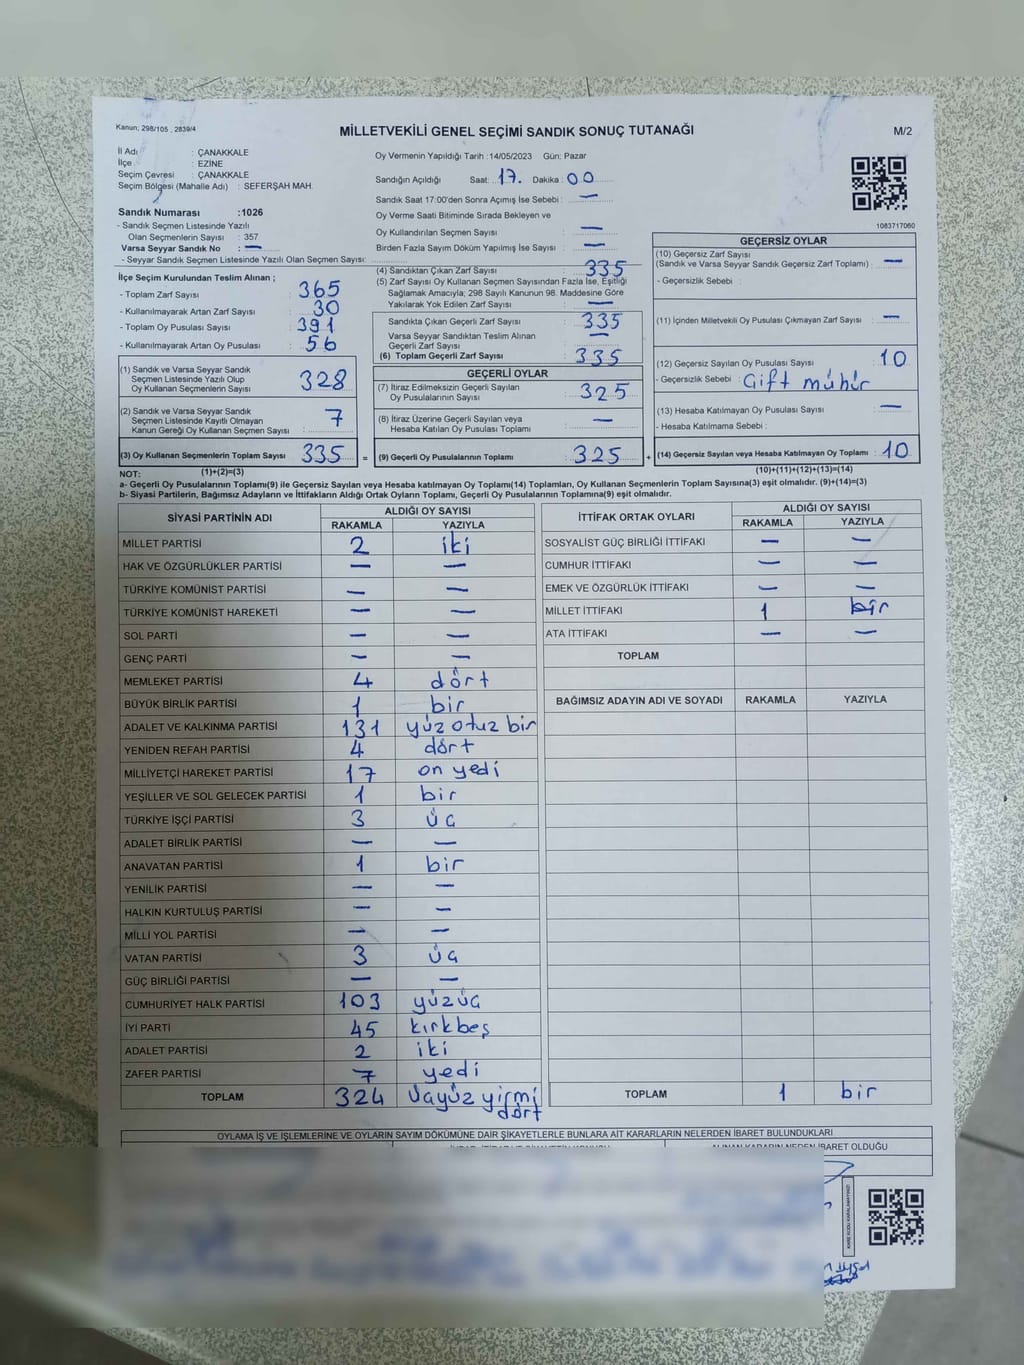 Kanun; 298/105 , 2839/4
MİLLETVEKİLİ GENEL SEÇİMİ SANDIK SONUÇ TUTANAĞI
M/2
İl Adı : ÇANAKKALE
İlçe : EZİNE
Seçim Çevresi : ÇANAKKALE
Seçim Bölgesi (Mahalle Adı) : SEFERŞAH MAH.
Sandık Numarası :1026
- Sandık Seçmen Listesinde Yazılı
Olan Seçmenlerin Sayısı : 357
Varsa Seyyar Sandık No : —
- Seyyar Sandık Seçmen Listesinde Yazılı Olan Seçmen Sayısı:
Oy Vermenin Yapıldığı Tarih :14/05/2023 Gün: Pazar
Sandığın Açıldığı Saat: 17. Dakika: 00
Sandık Saat 17:00'den Sonra Açımış İse Sebebi : —
Oy Verme Saati Bitiminde Sırada Bekleyen ve
Oy Kullandırılan Seçmen Sayısı : —
Birden Fazla Sayım Döküm Yapılmış İse Sayısı : —
1083717060
İlçe Seçim Kurulundan Teslim Alınan ;
- Toplam Zarf Sayısı : 365
- Kullanılmayarak Artan Zarf Sayısı : 30
- Toplam Oy Pusulası Sayısı : 391
- Kullanılmayarak Artan Oy Pusulası : 56
(1) Sandık ve Varsa Seyyar Sandık
Seçmen Listesinde Yazılı Olup
Oy Kullanan Seçmenlerin Sayısı : 328
(2) Sandık ve Varsa Seyyar Sandık
Seçmen Listesinde Kayıtlı Olmayan
Kanun Gereği Oy Kullanan Seçmen Sayısı : 7
(3) Oy Kullanan Seçmenlerin Toplam Sayısı : 335 =
(1)+(2)=(3)
(4) Sandıktan Çıkan Zarf Sayısı : 335
(5) Zarf Sayısı Oy Kullanan Seçmen Sayısından Fazla İse, Eşitliği
Sağlamak Amacıyla; 298 Sayılı Kanunun 98. Maddesine Göre
Yakılarak Yok Edilen Zarf Sayısı : —
Sandıkta Çıkan Geçerli Zarf Sayısı : 335
Varsa Seyyar Sandıktan Teslim Alınan
Geçerli Zarf Sayısı : —
(6) Toplam Geçerli Zarf Sayısı : 335
GEÇERLİ OYLAR
(7) İtiraz Edilmeksizin Geçerli Sayılan
Oy Pusulalarının Sayısı : 325
(8) İtiraz Üzerine Geçerli Sayılan veya
Hesaba Katılan Oy Pusulası Toplamı : —
(9) Geçerli Oy Pusulalarının Toplamı : 325 +
GEÇERSİZ OYLAR
(10) Geçersiz Zarf Sayısı
(Sandık ve Varsa Seyyar Sandık Geçersiz Zarf Toplamı) : —
- Geçersizlik Sebebi :
(11) İçinden Milletvekili Oy Pusulası Çıkmayan Zarf Sayısı : —
(12) Geçersiz Sayılan Oy Pusulası Sayısı : 10
- Geçersizlik Sebebi : Çift mühür
(13) Hesaba Katılmayan Oy Pusulası Sayısı : —
- Hesaba Katılmama Sebebi :
(14) Geçersiz Sayılan veya Hesaba Katılmayan Oy Toplamı : 10
(10)+(11)+(12)+(13)=(14)
NOT:
a- Geçerli Oy Pusulalarının Toplamı(9) ile Geçersiz Sayılan veya Hesaba Katılmayan Oy Toplamı(14) Toplamları, Oy Kullanan Seçmenlerin Toplam Sayısına(3) eşit olmalıdır. (9)+(14)=(3)
b- Siyasi Partilerin, Bağımsız Adayların ve İttifakların Aldığı Ortak Oyların Toplamı, Geçerli Oy Pusulalarının Toplamına(9) eşit olmalıdır.
SİYASİ PARTİNİN ADI ALDIĞI OY SAYISI
RAKAMLA YAZIYLA
MİLLET PARTİSİ 2 iki
HAK VE ÖZGÜRLÜKLER PARTİSİ — —
TÜRKİYE KOMÜNİST PARTİSİ — —
TÜRKİYE KOMÜNİST HAREKETİ — —
SOL PARTİ — —
GENÇ PARTİ — —
MEMLEKET PARTİSİ 4 dört
BÜYÜK BİRLİK PARTİSİ 1 bir
ADALET VE KALKINMA PARTİSİ 131 yüz otuz bir
YENİDEN REFAH PARTİSİ 4 dört
MİLLİYETÇİ HAREKET PARTİSİ 17 on yedi
YEŞİLLER VE SOL GELECEK PARTİSİ 1 bir
TÜRKİYE İŞÇİ PARTİSİ 3 üç
ADALET BİRLİK PARTİSİ — —
ANAVATAN PARTİSİ 1 bir
YENİLİK PARTİSİ — —
HALKIN KURTULUŞ PARTİSİ — —
MİLLİ YOL PARTİSİ — —
VATAN PARTİSİ 3 üç
GÜÇ BİRLİĞİ PARTİSİ — —
CUMHURİYET HALK PARTİSİ 103 yüzüç
İYİ PARTİ 45 kırkbeş
ADALET PARTİSİ 2 iki
ZAFER PARTİSİ 7 yedi
TOPLAM 324 üçyüz yirmi
dört
İTTİFAK ORTAK OYLARI ALDIĞI OY SAYISI
RAKAMLA YAZIYLA
SOSYALİST GÜÇ BİRLİĞİ İTTİFAKI — —
CUMHUR İTTİFAKI — —
EMEK VE ÖZGÜRLÜK İTTİFAKI — —
MİLLET İTTİFAKI 1 bir
ATA İTTİFAKI — —
TOPLAM
BAĞIMSIZ ADAYIN ADI VE SOYADI RAKAMLA YAZIYLA
TOPLAM 1 bir
OYLAMA İŞ VE İŞLEMLERİNE VE OYLARIN SAYIM DÖKÜMÜNE DAİR ŞİKAYETLERLE BUNLARA AİT KARARLARIN NELERDEN İBARET BULUNDUKLARI
ALINAN KARARIN NEDEN İBARET OLDUĞU
KARE KODU KARALAMAYINIZ!